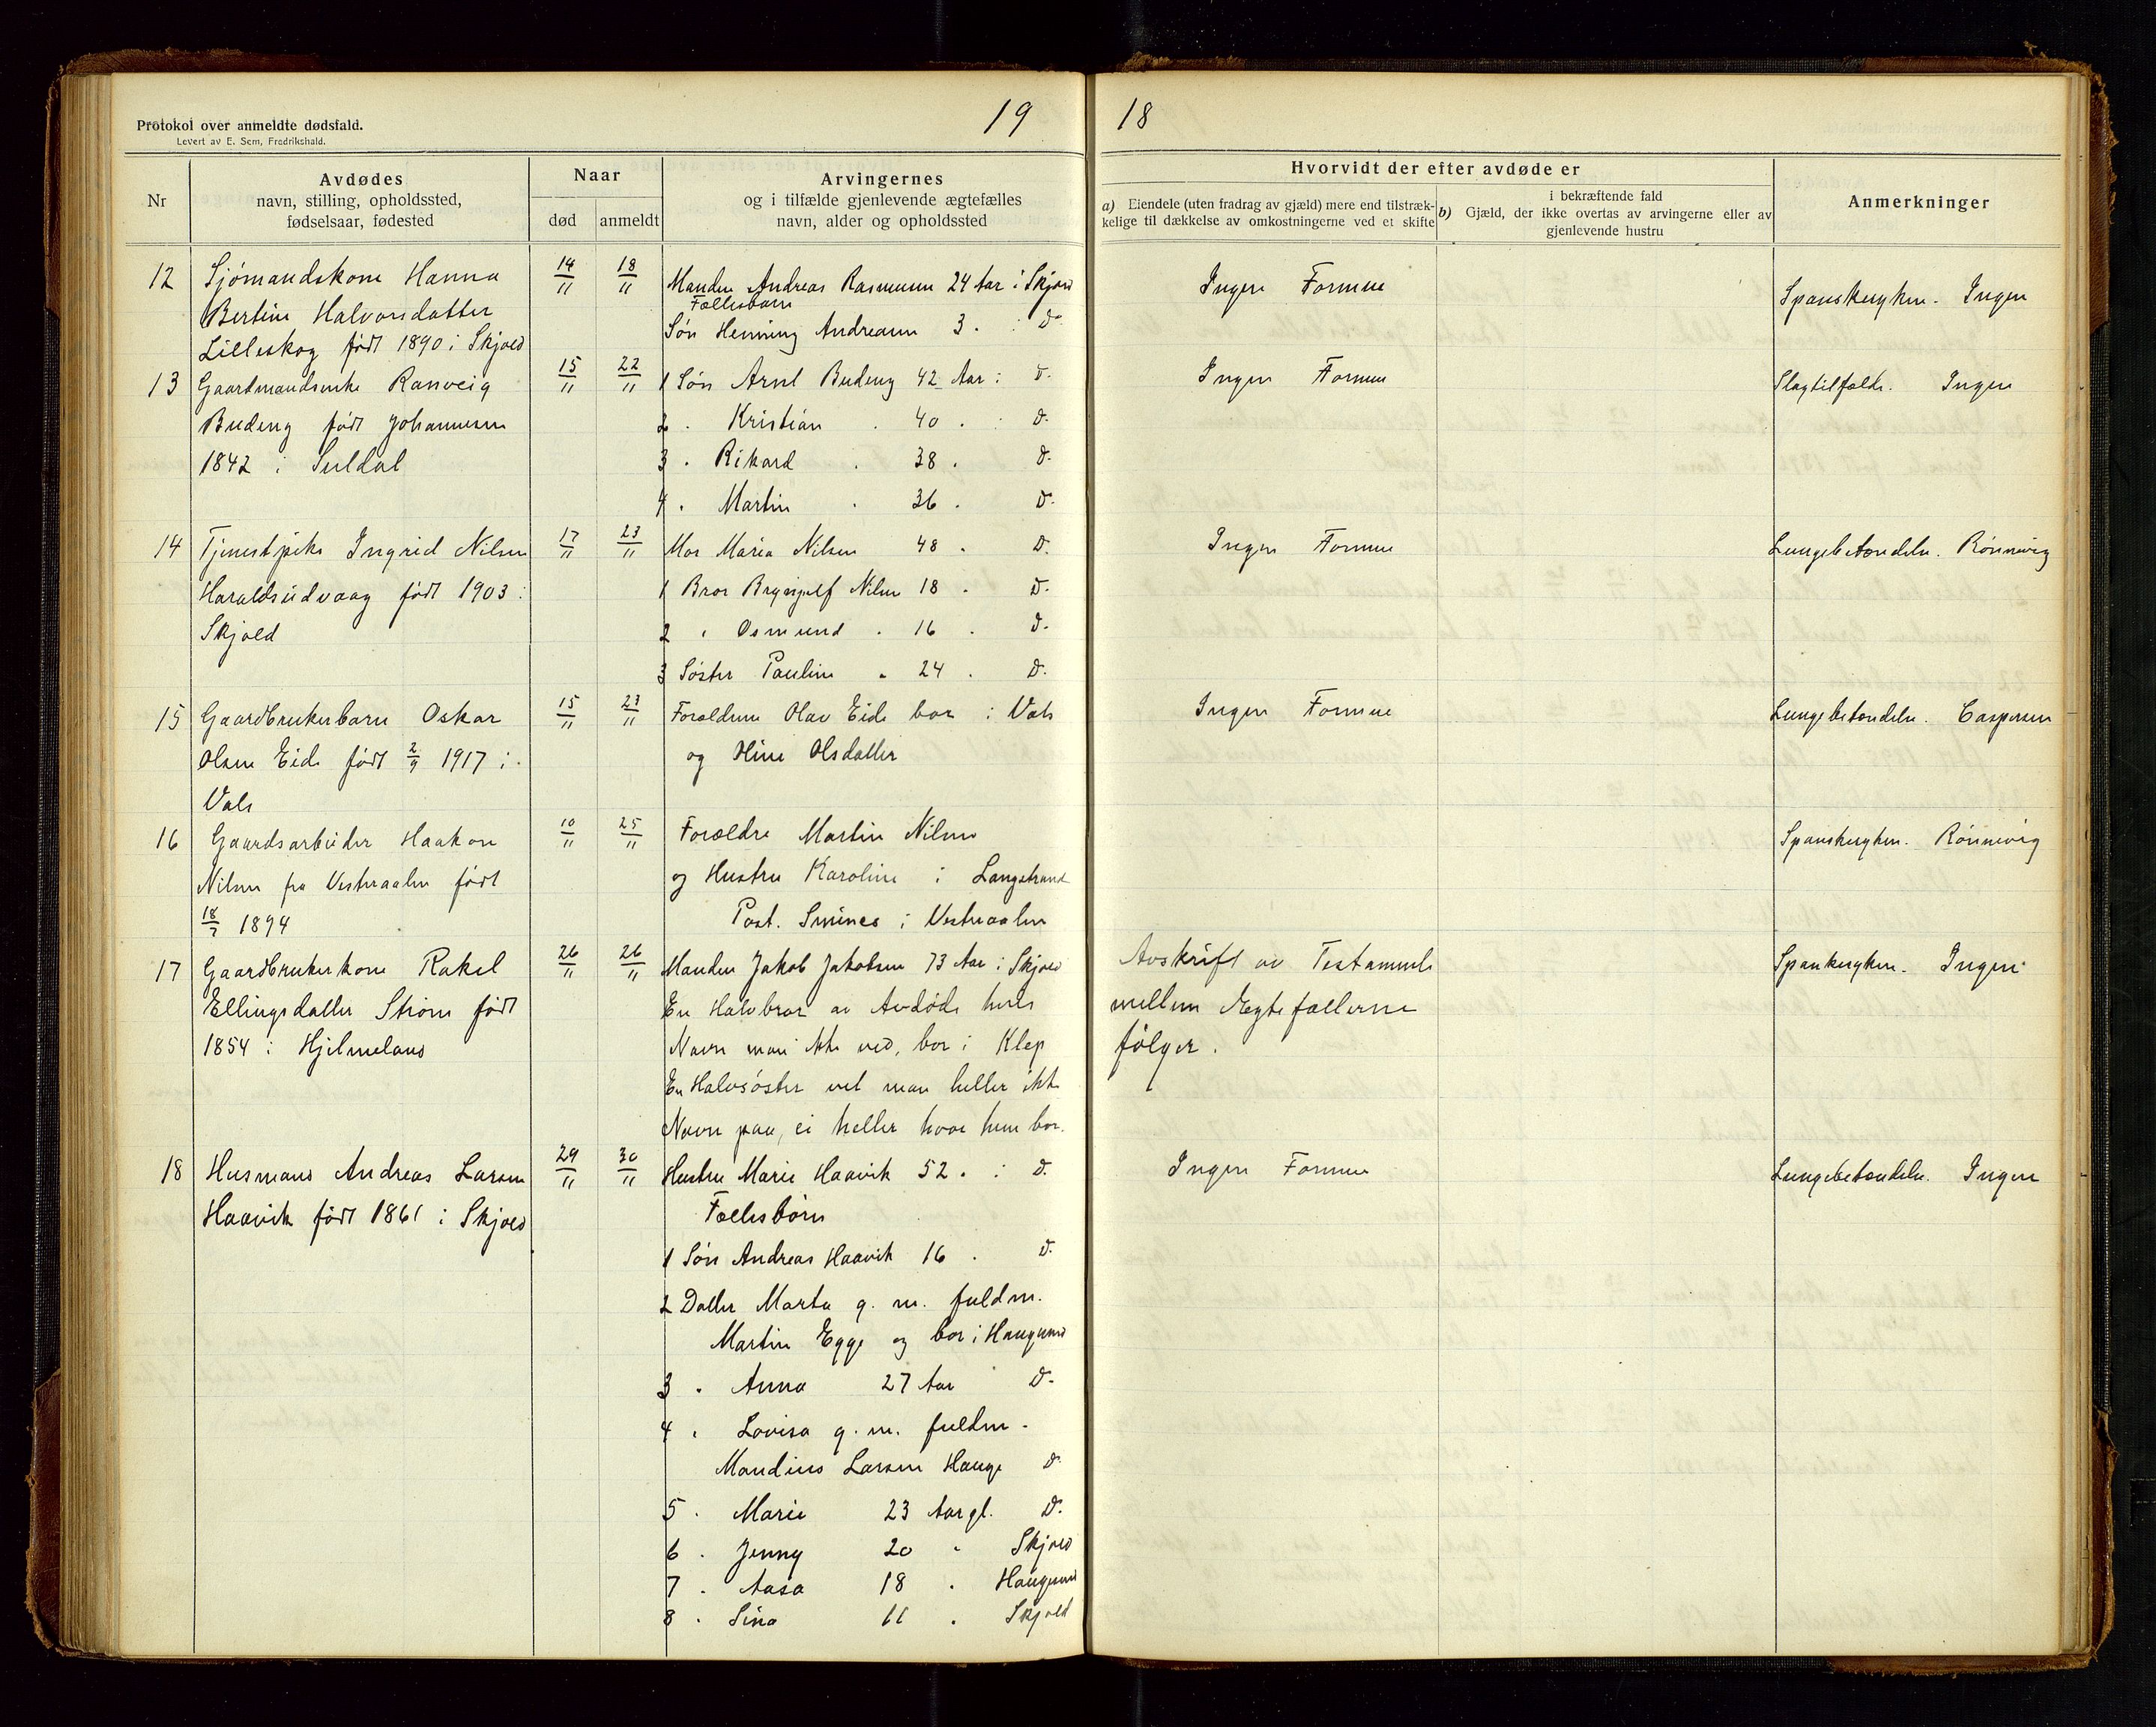 Protokol over anmeldte dødsfald.
Levert av E. Sem, Fredrikshald.
19
18
Nr
Avdødes
navn, stilling, opholdssted,
fødselsaar, fødested
Naar
død
anmeldt
Arvingernes
og i tilfælde gjenlevende ægtefælles
navn, alder og opholdssted
Hvorvidt der efter avdøde er
a) Eiendele (uten fradrag av gjæld) mere end tilstræk-
kelige til dækkelse av omkostningerne ved et skifte
i bekræftende fald
b) Gjæld, der ikke overtas av arvingerne eller av
gjenlevende hustru
Anmerkninger
12 Sjömandskone Hanna
Bertine Halvorsdatter
Lilleskog født 1890 i Skjold
14/11 18/11
Manden Andreas Rasmussen 24 Aar i Skjold
Fællesbarn
Søn Henning Andreassen 3 . : D.
Ingen Formue
Spanskesyken. Ingen
13 Gaardmandsenke Ranveig
Budeng født Johannesen
1842 i Suldal
15/11 22/11
1 Søn Arnt Budeng 42 Aar : D.
2 . Kristian . 40 . : D.
3 . Rikard . 38 . D.
4 . Martin . 36 . D.
Ingen Formue
Slagtilfælde. Ingen
14 Tjenestpike Ingrid Nilsen
Haraldseidvaag født 1903 i
Skjold
17/11 23/11
Mor Maria Nilsen 48 . D.
1 Bror Brynjulf Nilsen 18 . D.
2 " Osmund . 16 . D.
3 Søster Pauline . 24 . D.
Ingen Formue
Lungebetændelse. Rönnevig
15 Gaardbrukerbarn Oskar
Olsen Eide født 2/9 1917 i
Vats
15/11 23/11
Forældrene Olav Eide bor i Vats
og Oline Olsdatter
Ingen Formue
Lungebetændelse. Caspersen
16 Gaardsarbeider Haakon
Nilsen fra Vesteraalen født
18/7 1894
10/11 25/11
Forældre Martin Nilsen
og Hustru Karoline i Langstrand
Post. Smines i Vesteraalen
Spanskesyken. Rönnevig
17 Gaardbrukerkone Rakel
Ellingsdatter Strøm født
1854 i Hjelmeland
26/11 26/11
Manden Jakob Jakobsen 73 Aar i Skjold
En Halvbror av Avdøde hvis
Navn man ikke ved, bor i Klep
En Halvsøster vet man heller ikke
Navn paa, ei heller hvor hun bor.
Avskrift av Testamente
mellem Ægtefællerne
følger.
Spankesyken. Ingen
18 Husmand Andreas Larsen
Haavik født 1861 i Skjold
29/11 30/11
Hustru Marie Haavik 52 . : D.
Fællesbörn
1 Søn Andreas Haavik 16 . D.
2 Datter Marta g. m. fuldm.
Martin Egge og bor i Haugesund
3 . Anna 27 Aar D.
4 . Lovisa g. m. fuldm.
Mandius Larsen Hauge D.
5 . Marie 23 Aar gl. D.
6 . Jenny 20 " Skjold
7 . Aasa 18 . Haugesund
8 . Sina 11 . Skjold
Ingen Formue
Lungebetændelse. Ingen